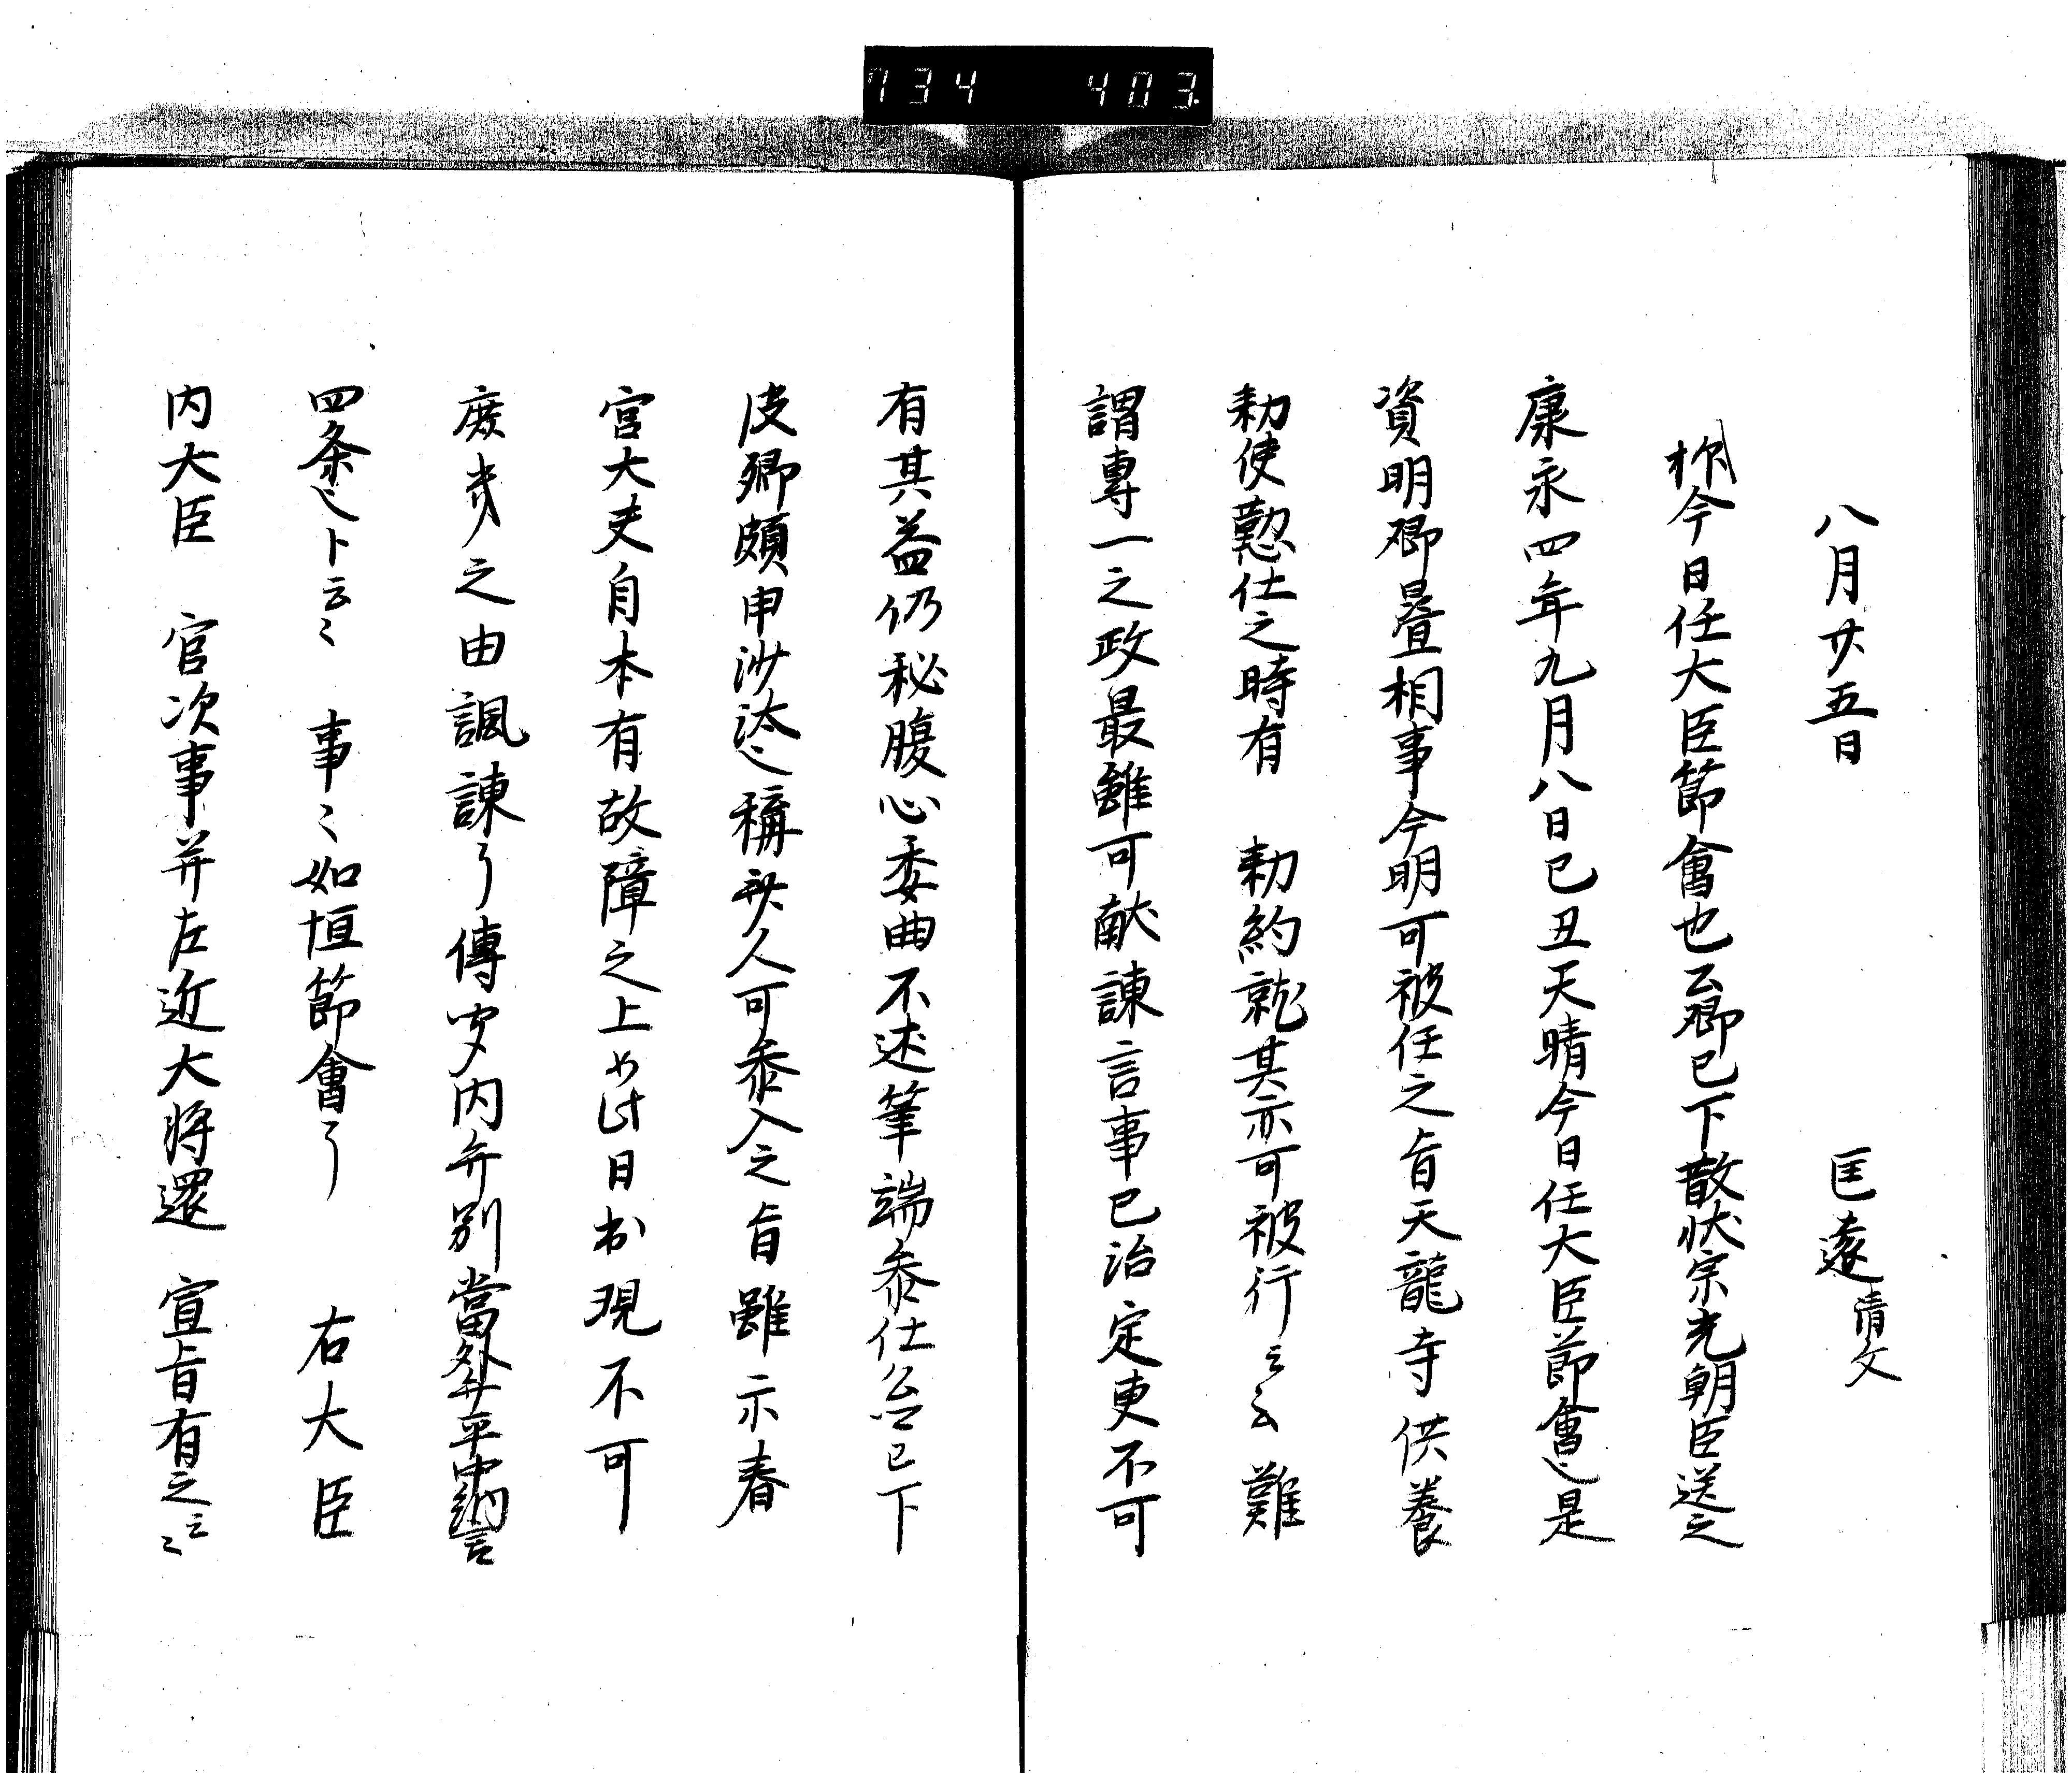 734 403
八月廿五日 匡遠請文
称今日任大臣節會也公卿已下散状宗光朝臣送之
康永四年九月八日己丑天晴今日任大臣節會也是
資明卿畳相事今明可被任之旨天龍寺供養
勅使懃仕之時有 勅約就其亦可被行云云難
謂専一之政最雖可献諫言事已治定更不可
有其益仍秘腹心委曲不述筆端参仕公卿已下
皮卿頗申沙汰也称無人可参入之旨雖示春
宮大夫自本有故障之上如此日出現不可
然之由諷諫了傳聞内弁別當外弁平中納言
四条也卜云〻 事〻如恒節會了 右大臣
内大臣 官次事并左近大将還 宣旨有之云〻